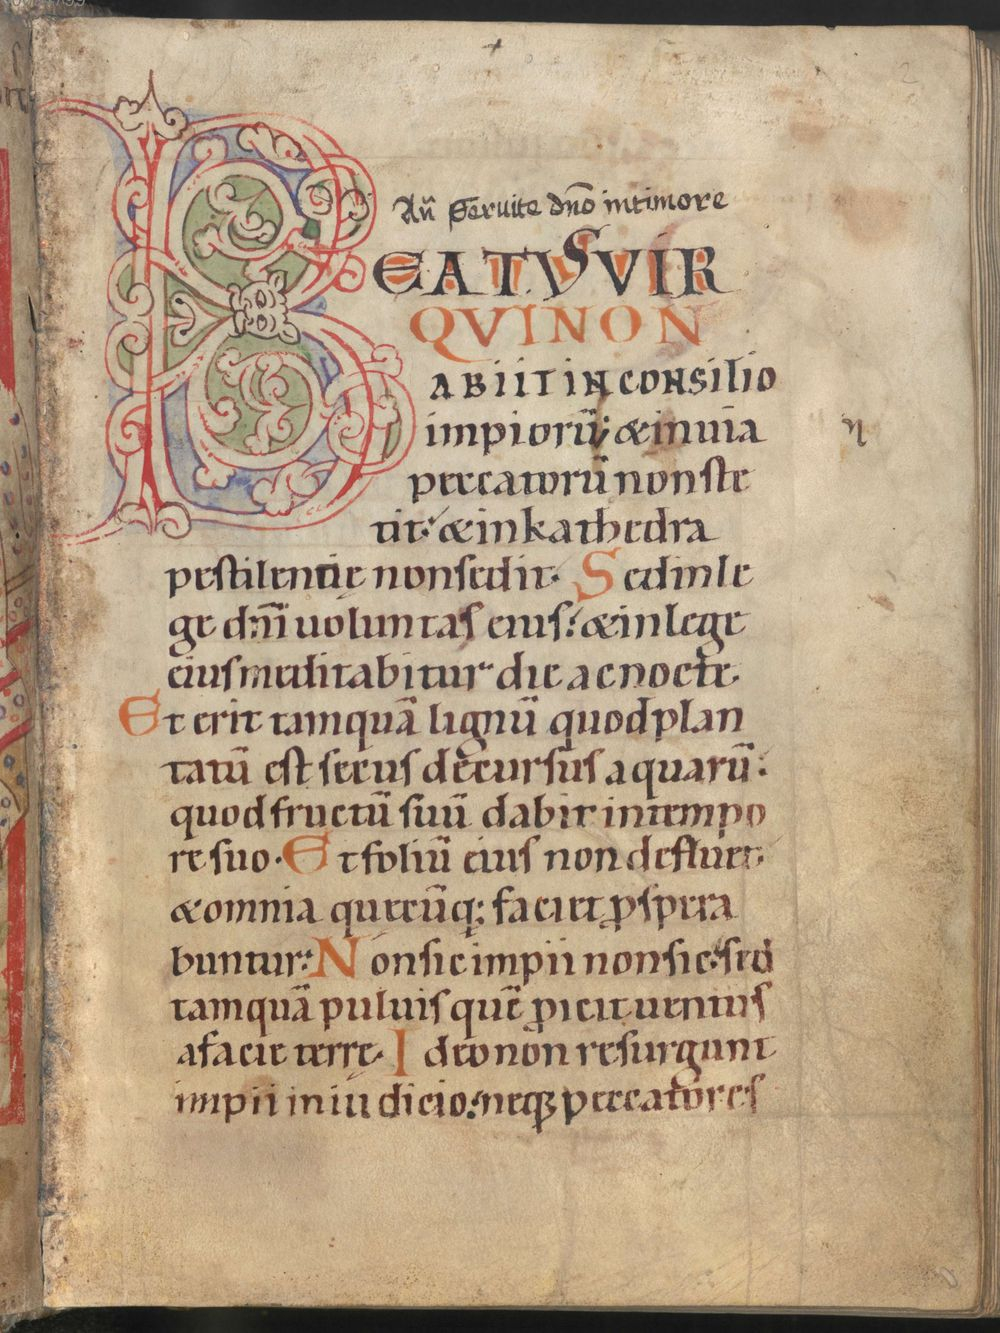 Añ Seruite dño in timore
BEATVS VIR
QVI NON
ABIIT IN CONSILIO
impiorū; & in uia
peccatorū non ste
tit; & in kathedra
pestilentię non sedit. Sed in le
ge dñi uoluntas eius; & in lege
eius meditabitur die ac nocte.
Et erit tamquā lignū quod plan
tatū est secus decursus aquarū;
quod fructū suū dabit in tempo
re suo. Et foliū eius non defluet;
& omnia quecūq; faciet ꝓspera
buntur; Non sic impii non sic; sed
tamquā puluis quē ꝓicit uentus
a facie terrę. Ideo non resurgunt
impii in iudicio; neq; peccatores